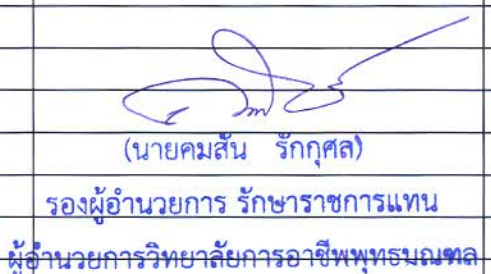 (นายคมสัน รักกุศล)
รองผู้อำนวยการ รักษาราชการแทน
ผู้อำนวยการวิทยาลัยการอาชีพพุทธมณฑล